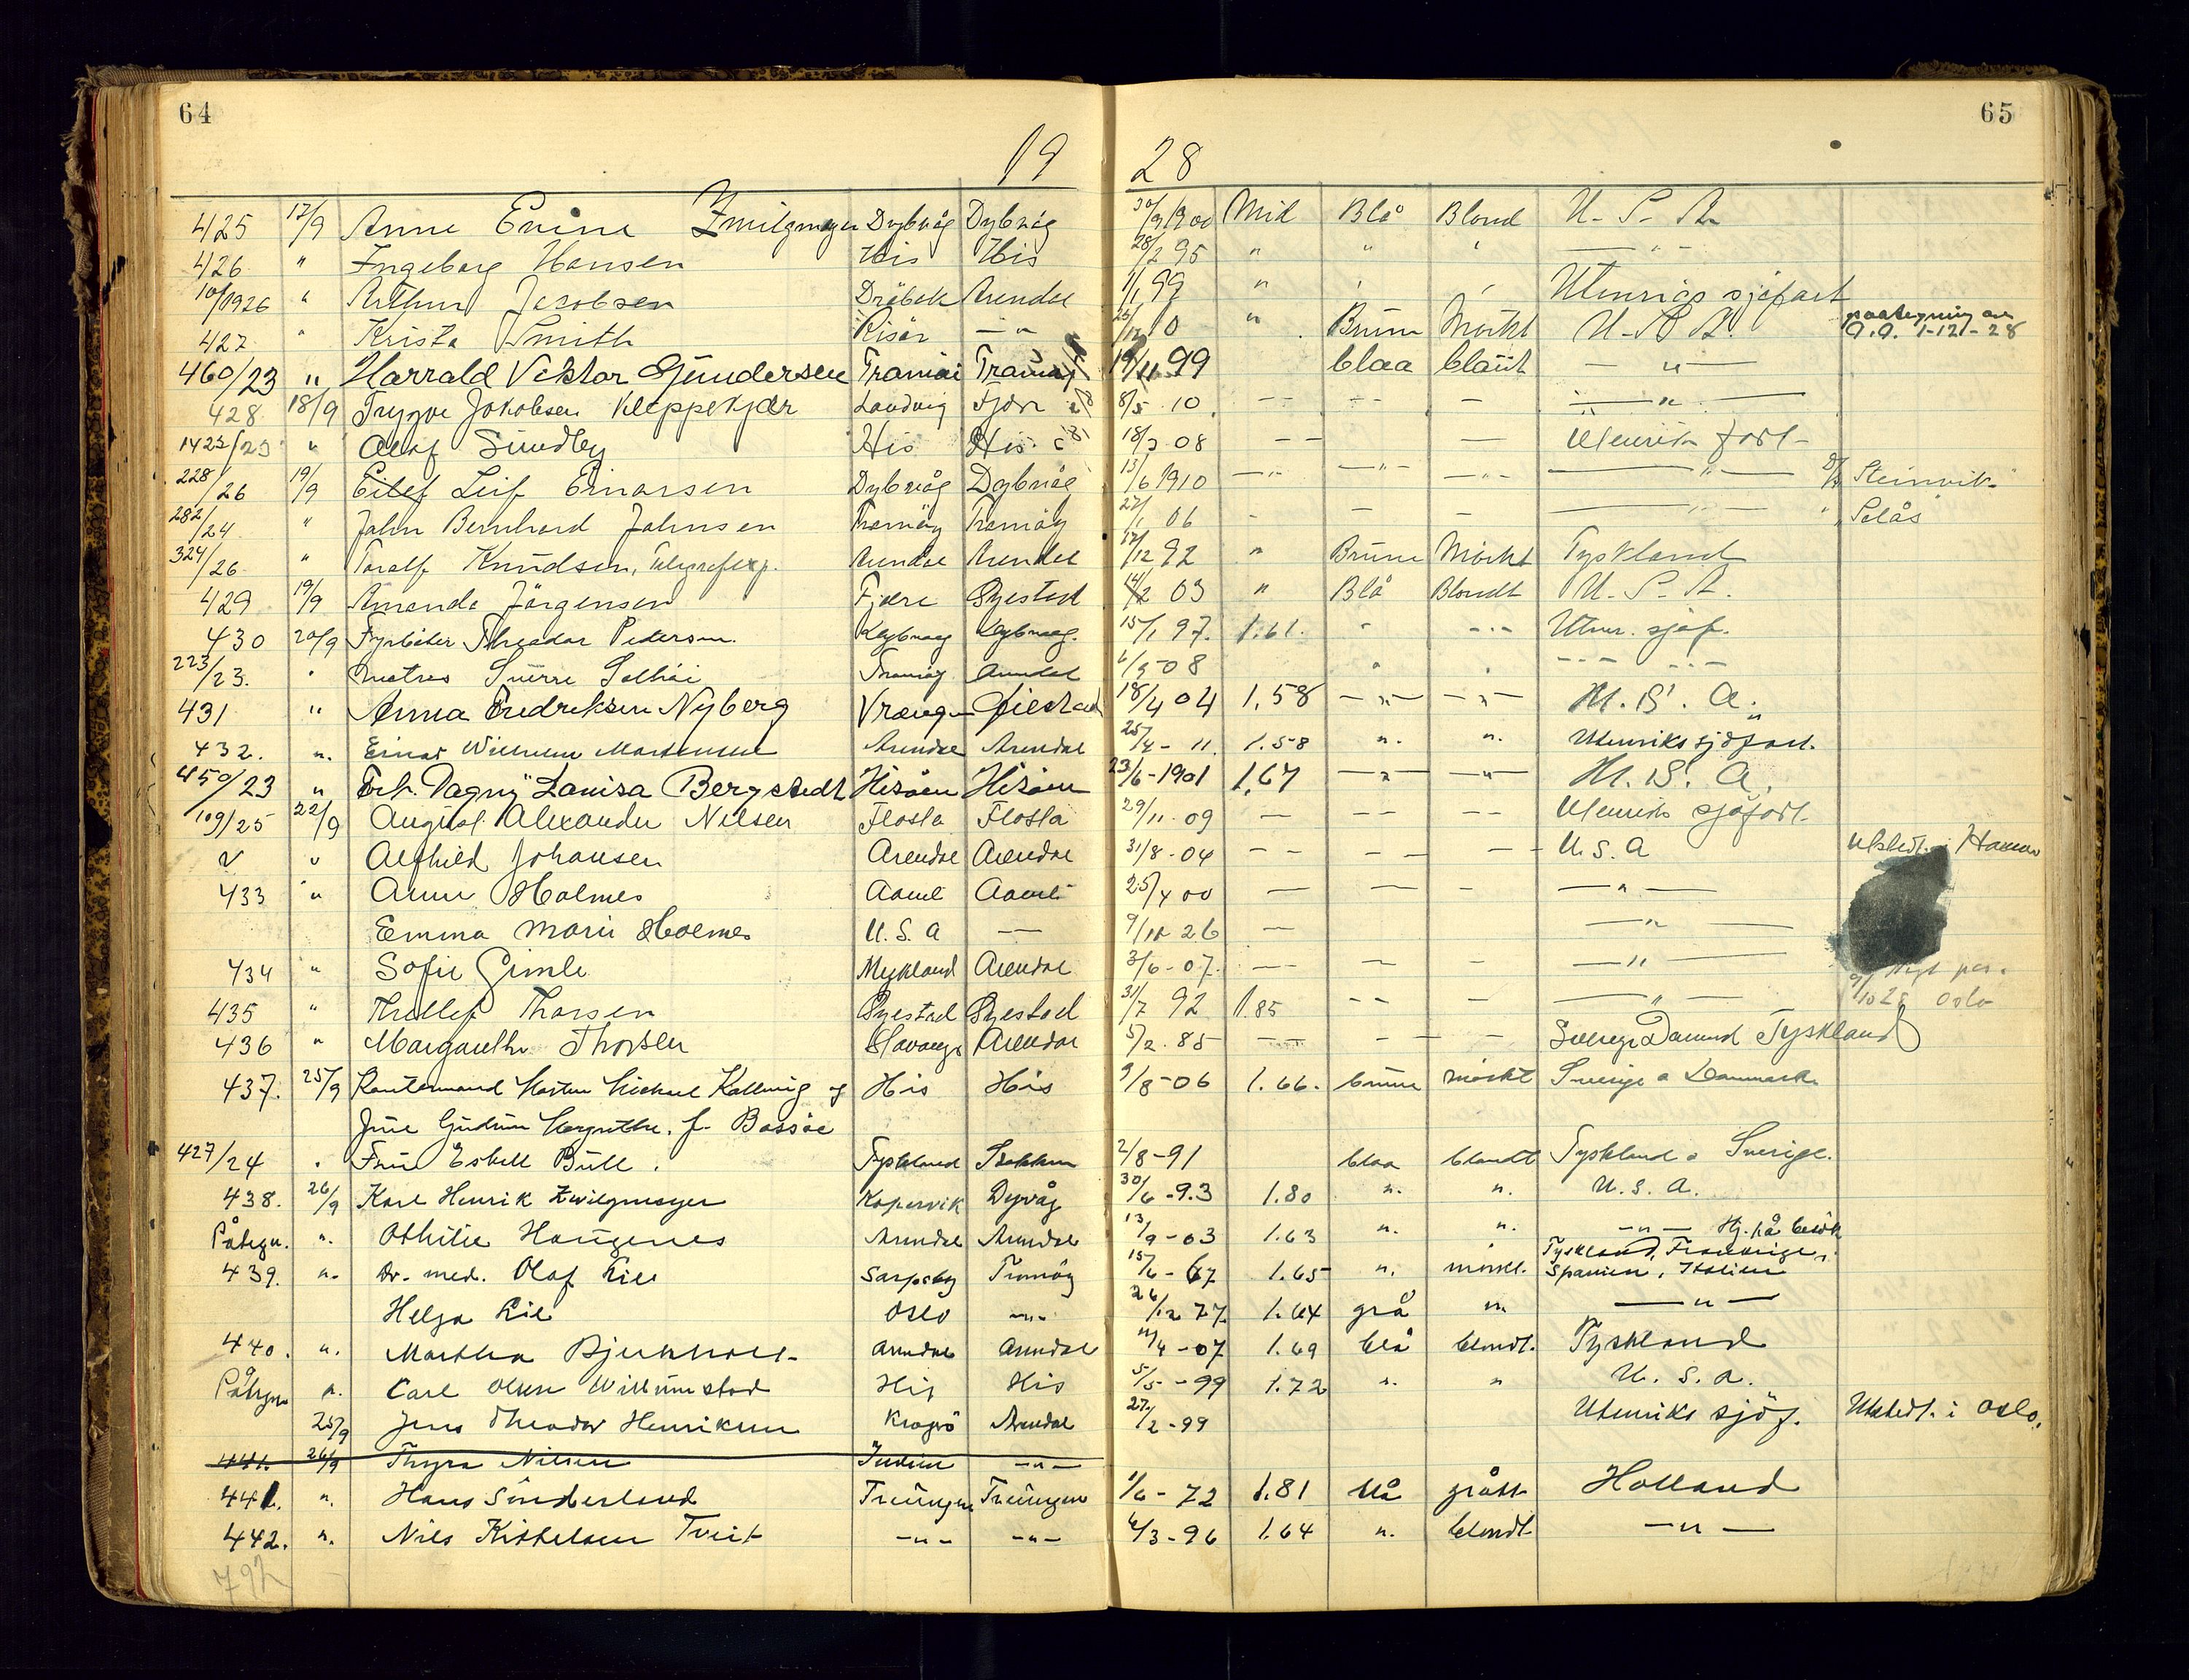 64
65
19 28
425 17/9 Anne Enine Zwilgmeyer Dybvåg Dybvåg 30/9 1900 Mid Blå Blond U. S. A.
426 " Ingeborg Hansen His His 28/2 95 " " " — " —
10/1926 " Arthur Jacobsen Dröbak Arendal 1/1 99 " Utenrigs sjöfart
427 " Krista Smith Risör — " 26/12 0 " Brune Mörkt U. S. A. paategning av A.A. 1-12-28
460/23 " Harrald Viktor Gundersen Tromöi 11 99 blaa blont — " —
428 18/9 Trygve Jakobsen Kleppekjær Landvig Fjære 8/5 10 — — — — " —
1423/23 " Olaf Sundby His His 18/3 08 — — — Utenriks fart
228/26 19/9 Eilef Leif Einarsen Dybvåg Dybvåg 13/6 1910 — " — — " — — " — — " — D/S Steinvik"
282/24 " John Bernhard Johnsen Tromöy Tromöy 27/1 06 — — — — " — " Selås
324/26 " Toralf Knudsen, Telegrafexp. Arendal Arendal 17/12 92 " Brune Mörkt Tyskland
429 19/9 Amanda Jörgensen Fjære Øyestad 14/2 03 " Blå Blondt U. S. A.
430 20/9 Fyrböter Theodor Pedersen Dybvaag Dybvaag. 15/1 97. 1.61. " — " — Utenr. sjöf.
223/23. " Matros Sverre Solhöi Tromöy Arendal 6/9-08 " " — " —
431 " Anna Fredriksen Nyberg Vrængen Øiestad 18/4 04 1,58 — " — — " — U. S. A.
432. ". Einar Wilhelm Mortensen Arendal Arendal 25/4 - 11. 1.58 ". ". Utenriks sjöfart.
450/23 " Frk. Dagny Lovisa Bergstedt Hisöen Hisöen 23/6-1901 1,67 — " — — " — U. S. A.
109/25 22/9 August Alexander Nilsen Flosta Flosta 29/11 09 — — — Utenriks sjöfart.
v " Alfhild Johansen Arendal Arendal 31/8-04 — — — — U. S. A Utstedt i
433 " Anne Holmes Aamli Aamli 25/4 00 — — — — " —
Emma Marie Holmes U. S. A — 9/10 26 — — " —
434 " Sofie Gimle Mykland Arendal 3/6-07. — — — — " —
435 " Thellef Thorsen Øyestad Øyestad 31/7 92 1.85 — — — " — 9/10 28 Oslo
436 " Margarethe Thorsen Stavanger Arendal 5/2. 85 — — — Sverige Danmark Tyskland
437. 25/9 Kontormand Morten Michael Kallevig og His His 9/8-06 1.66. brune mörkt Sverige o Danmark
Frue Gudrun Margrethe. f. Bassöe
427/24 " Frue Estell Bull. Tyskland Stokken 2/8-91 blaa blondt Tyskland o Sverige.
438. 26/9 Karl Henrik Zwilgmeyer Kopervik Dyvåg 30/6-93 1.80 ". ". U. S. A.
Påtegn. ". Othilie Haugenes Arendal Arendal 13/9-03 1.63 ". ". — " — Hj. på besök
439. ". Dr. med. Olaf Lie Sarpsbg Tromöy 15/6-67 1.65 ". mörkt. Tyskland, Frankrige, Spanien, Italien
Helga Lie Oslo — " — 26/12 77. 1.64 grå ". — " —
440. ". Martha Bjerkholt Arendal Arendal 11/4-07 1.69 blå blondt. Tyskland
Påtegn ". Carl Olsen Willumstad His His 5/5-99 1.72 ". " U. S. A.
25/9 Jens Theodor Henriksen Kragerö Arendal 27/2-99 Utenriks sjöf. Utstedt i Oslo.
441. 26/9 Thyra Nilsen — " —
441. ". Hans Sunderland Treungen Treungen 1/6-72 1.81 blå grått Holland
442. ". Nils Kittelsen Tveit — " — — " — 6/3-96 1.64 ". blondt — " —
792